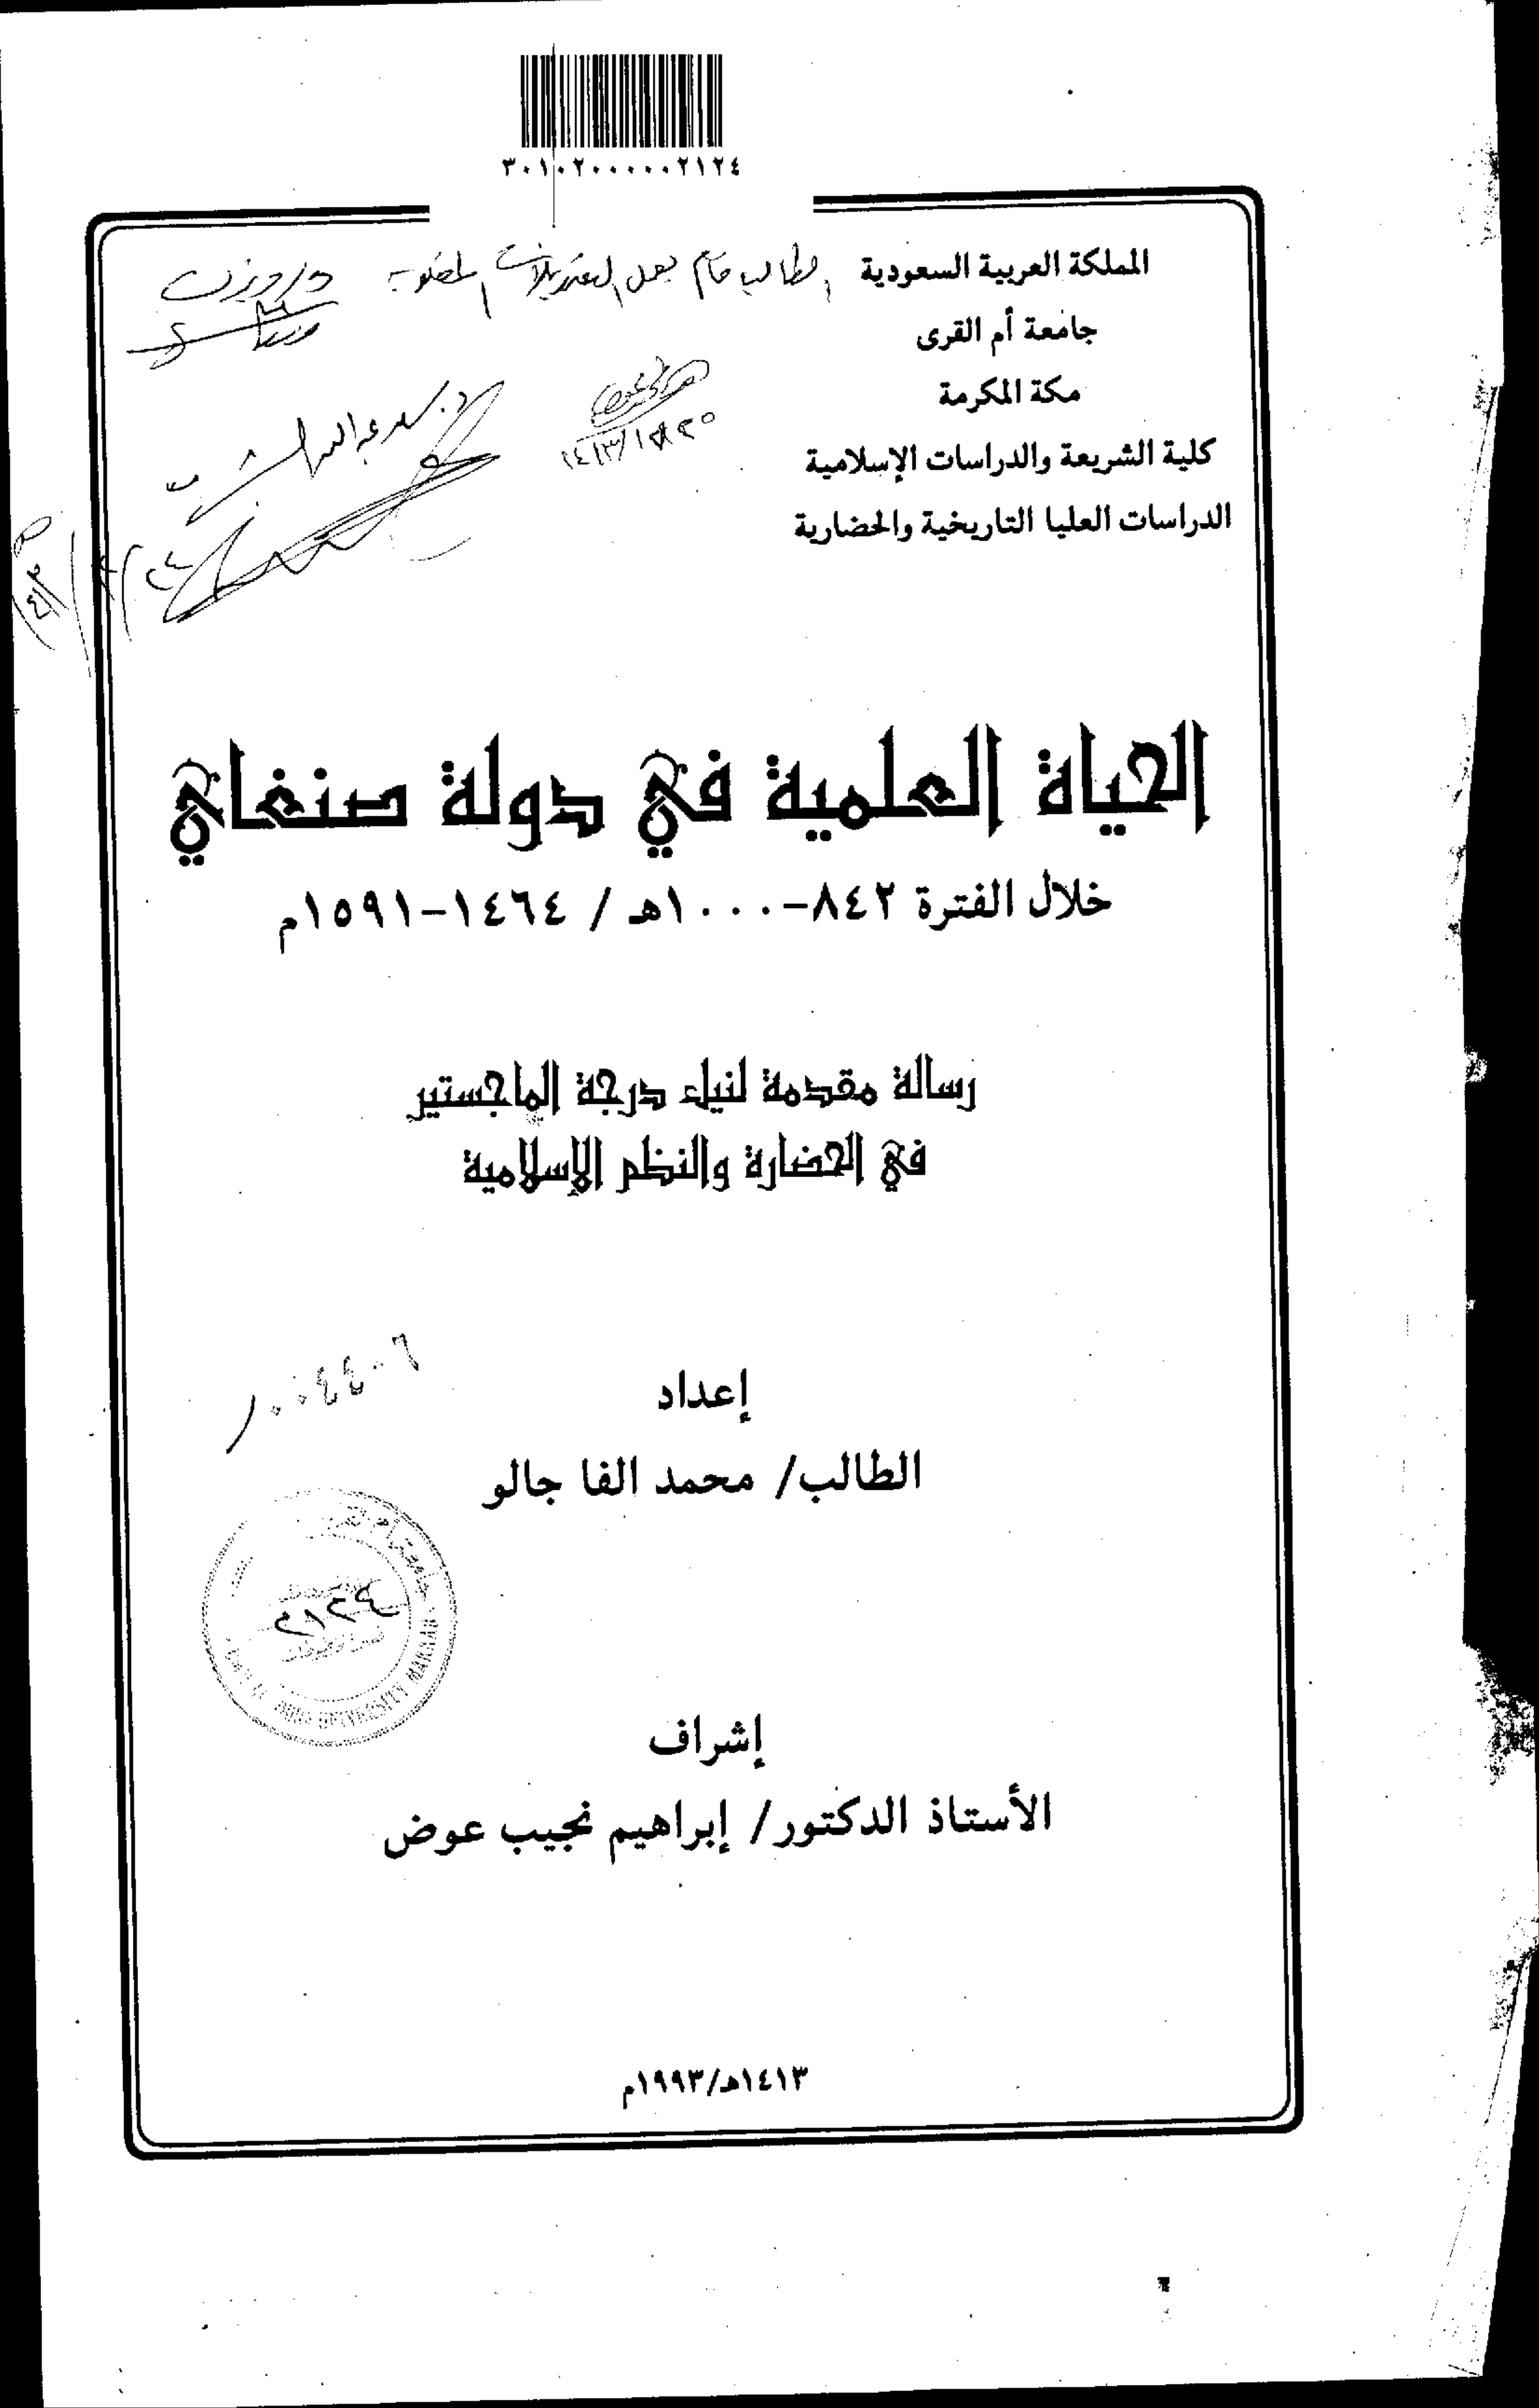 ٣٠١٠٢٠٠٠٠٠٢١٢٤
المملكة العربية السعودية
الطالب قام بعمل التعديلات المطلوبة
جامعة أم القرى
مكة المكرمة
كلية الشريعة والدراسات الإسلامية
الدراسات العليا التاريخية والحضارية
الحياة العلمية في دولة صنغاي
خلال الفترة ٨٤٢-١٠٠٠هـ / ١٤٦٤-١٥٩١م
رسالة مقدمة لنيل درجة الماجستير
في الحضارة والنظم الإسلامية
إعداد
الطالب/ محمد الفا جالو
٢١٢٤
UNIVERSITY MAKKAH
إشراف
الأستاذ الدكتور/ إبراهيم نجيب عوض
١٤١٣هـ/١٩٩٣م